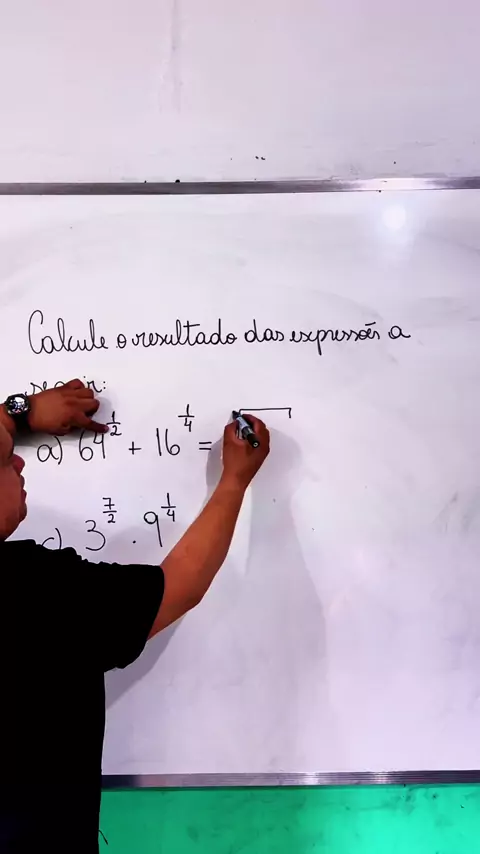 Calcule o resultado das expressões a
seguir:
a) 64^{1/2} + 16^{1/4} =
c) 3^{7/2} . 9^{1/4}